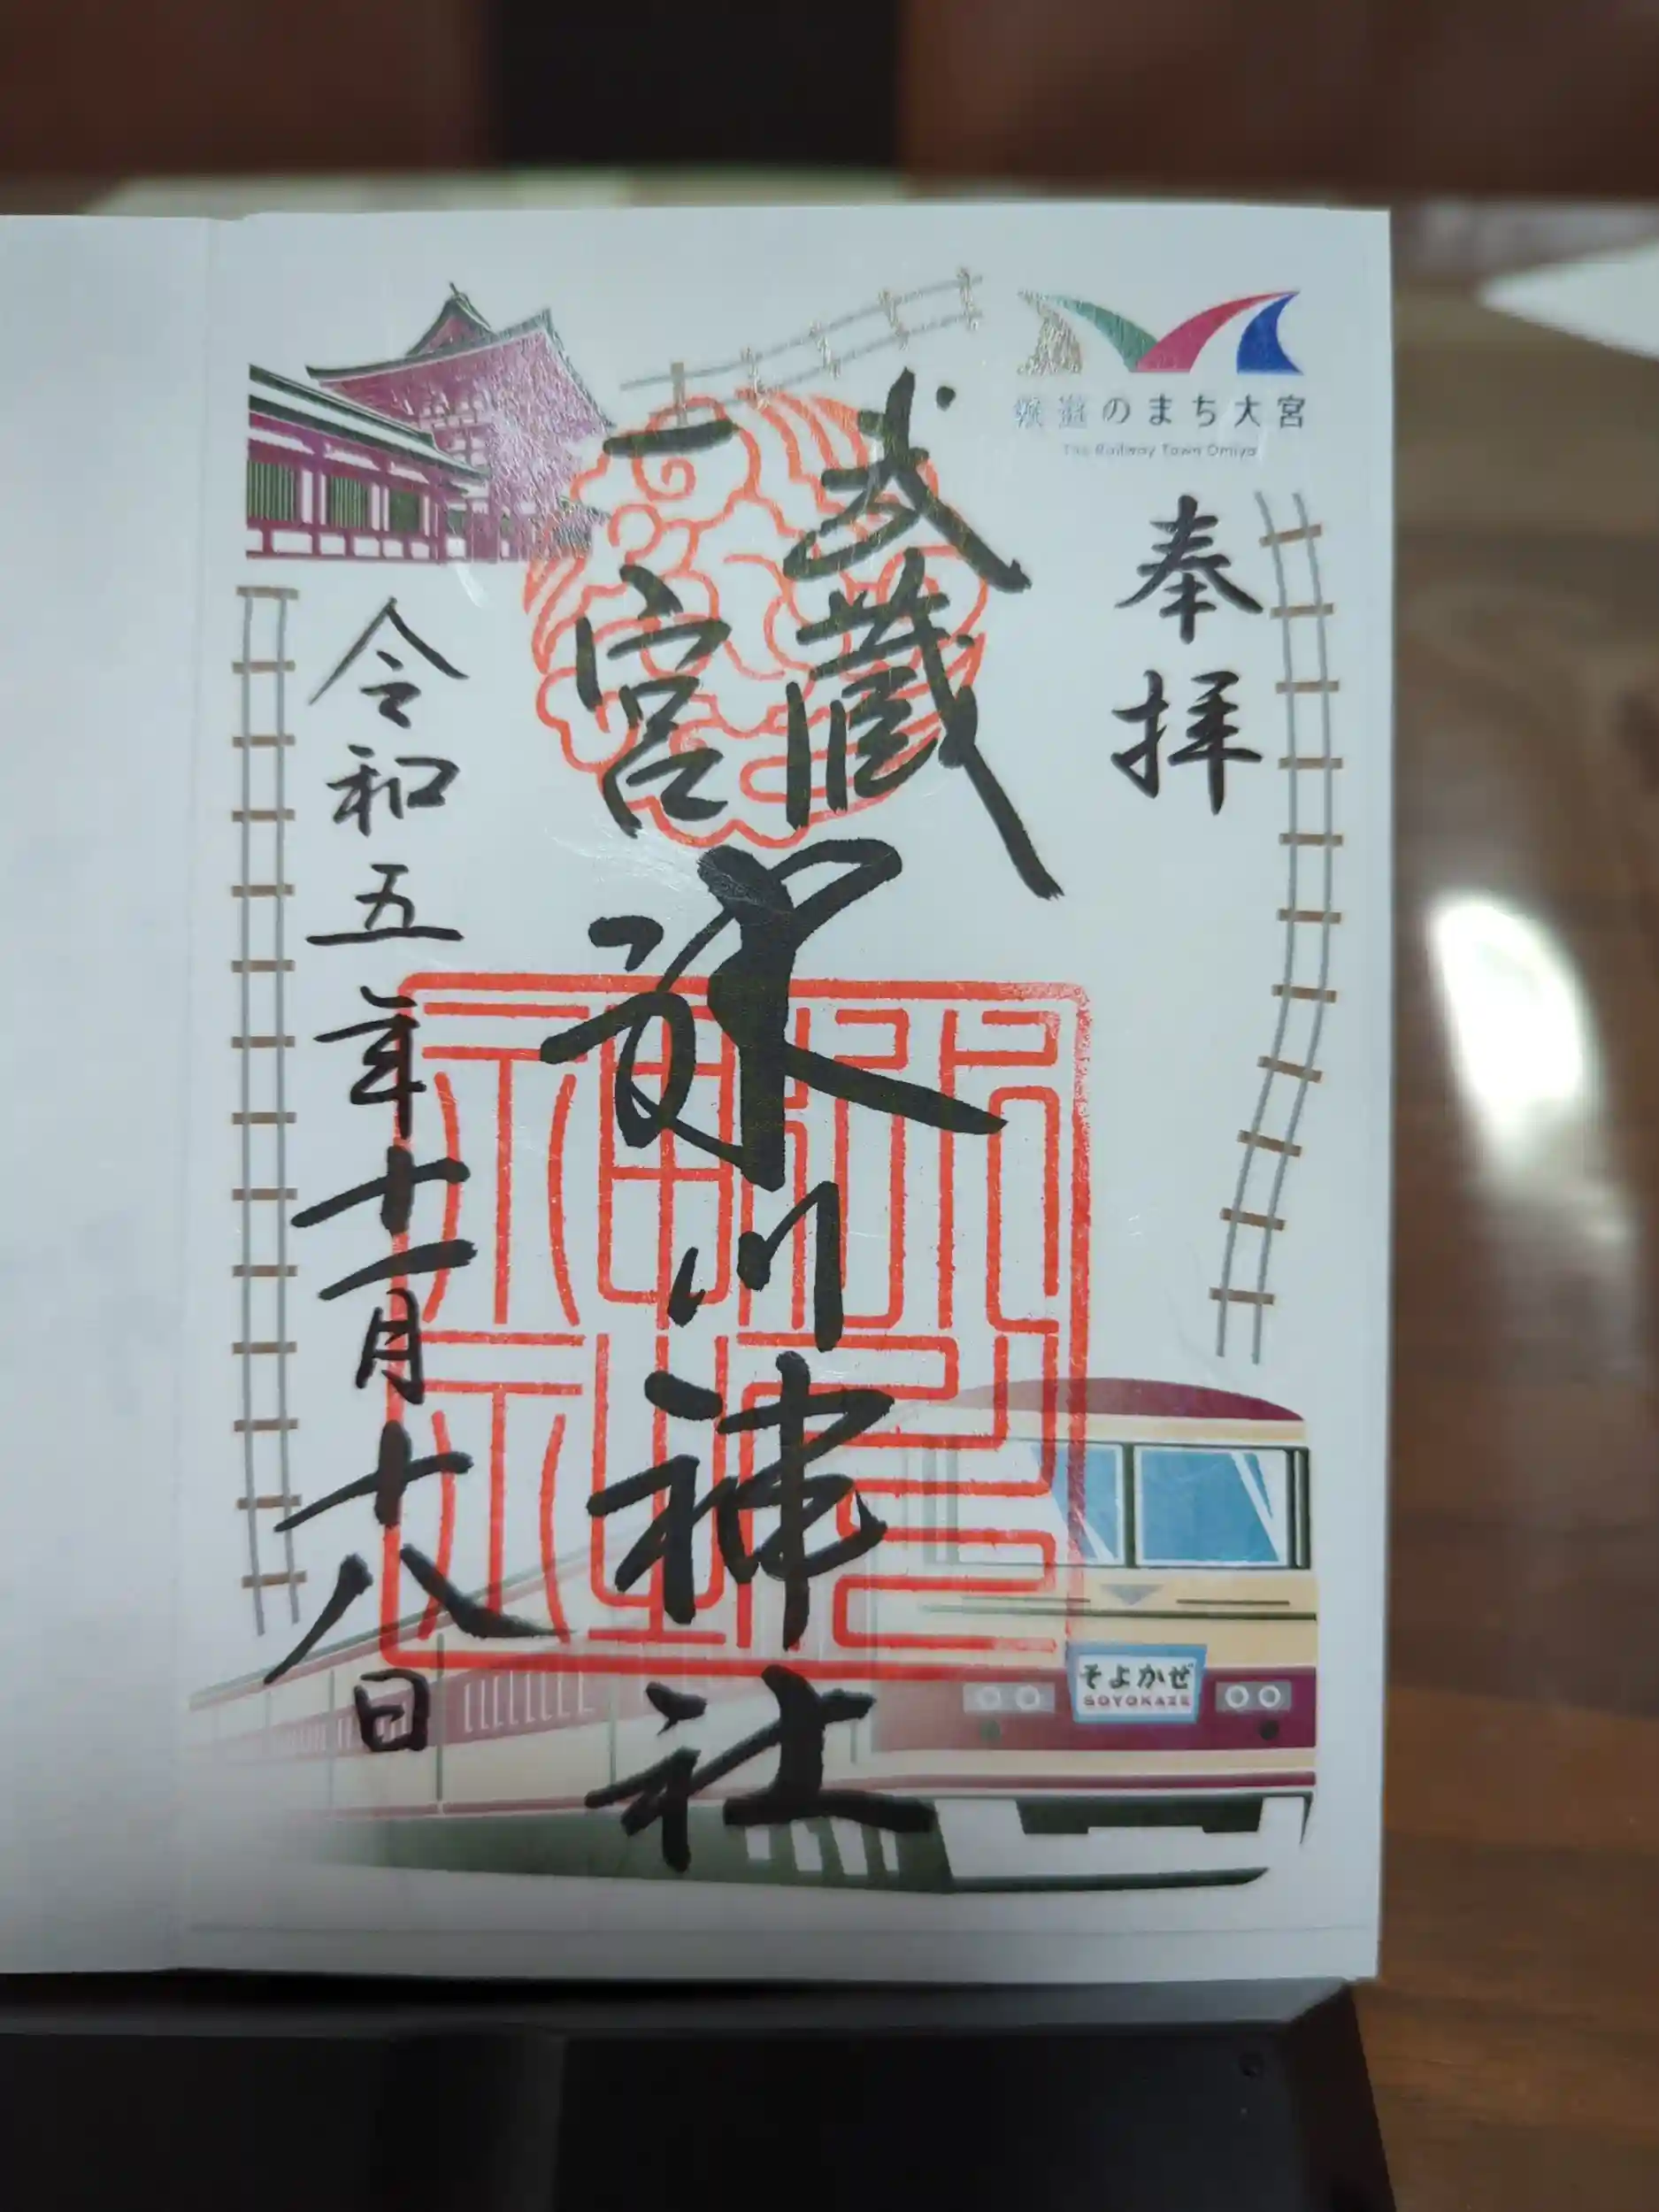 鉄道のまち大宮
The Railway Town Omiya
奉拝
武蔵
一宮
氷川神社
令和五年十一月十八日
そよかぜ
SOYOKAZE